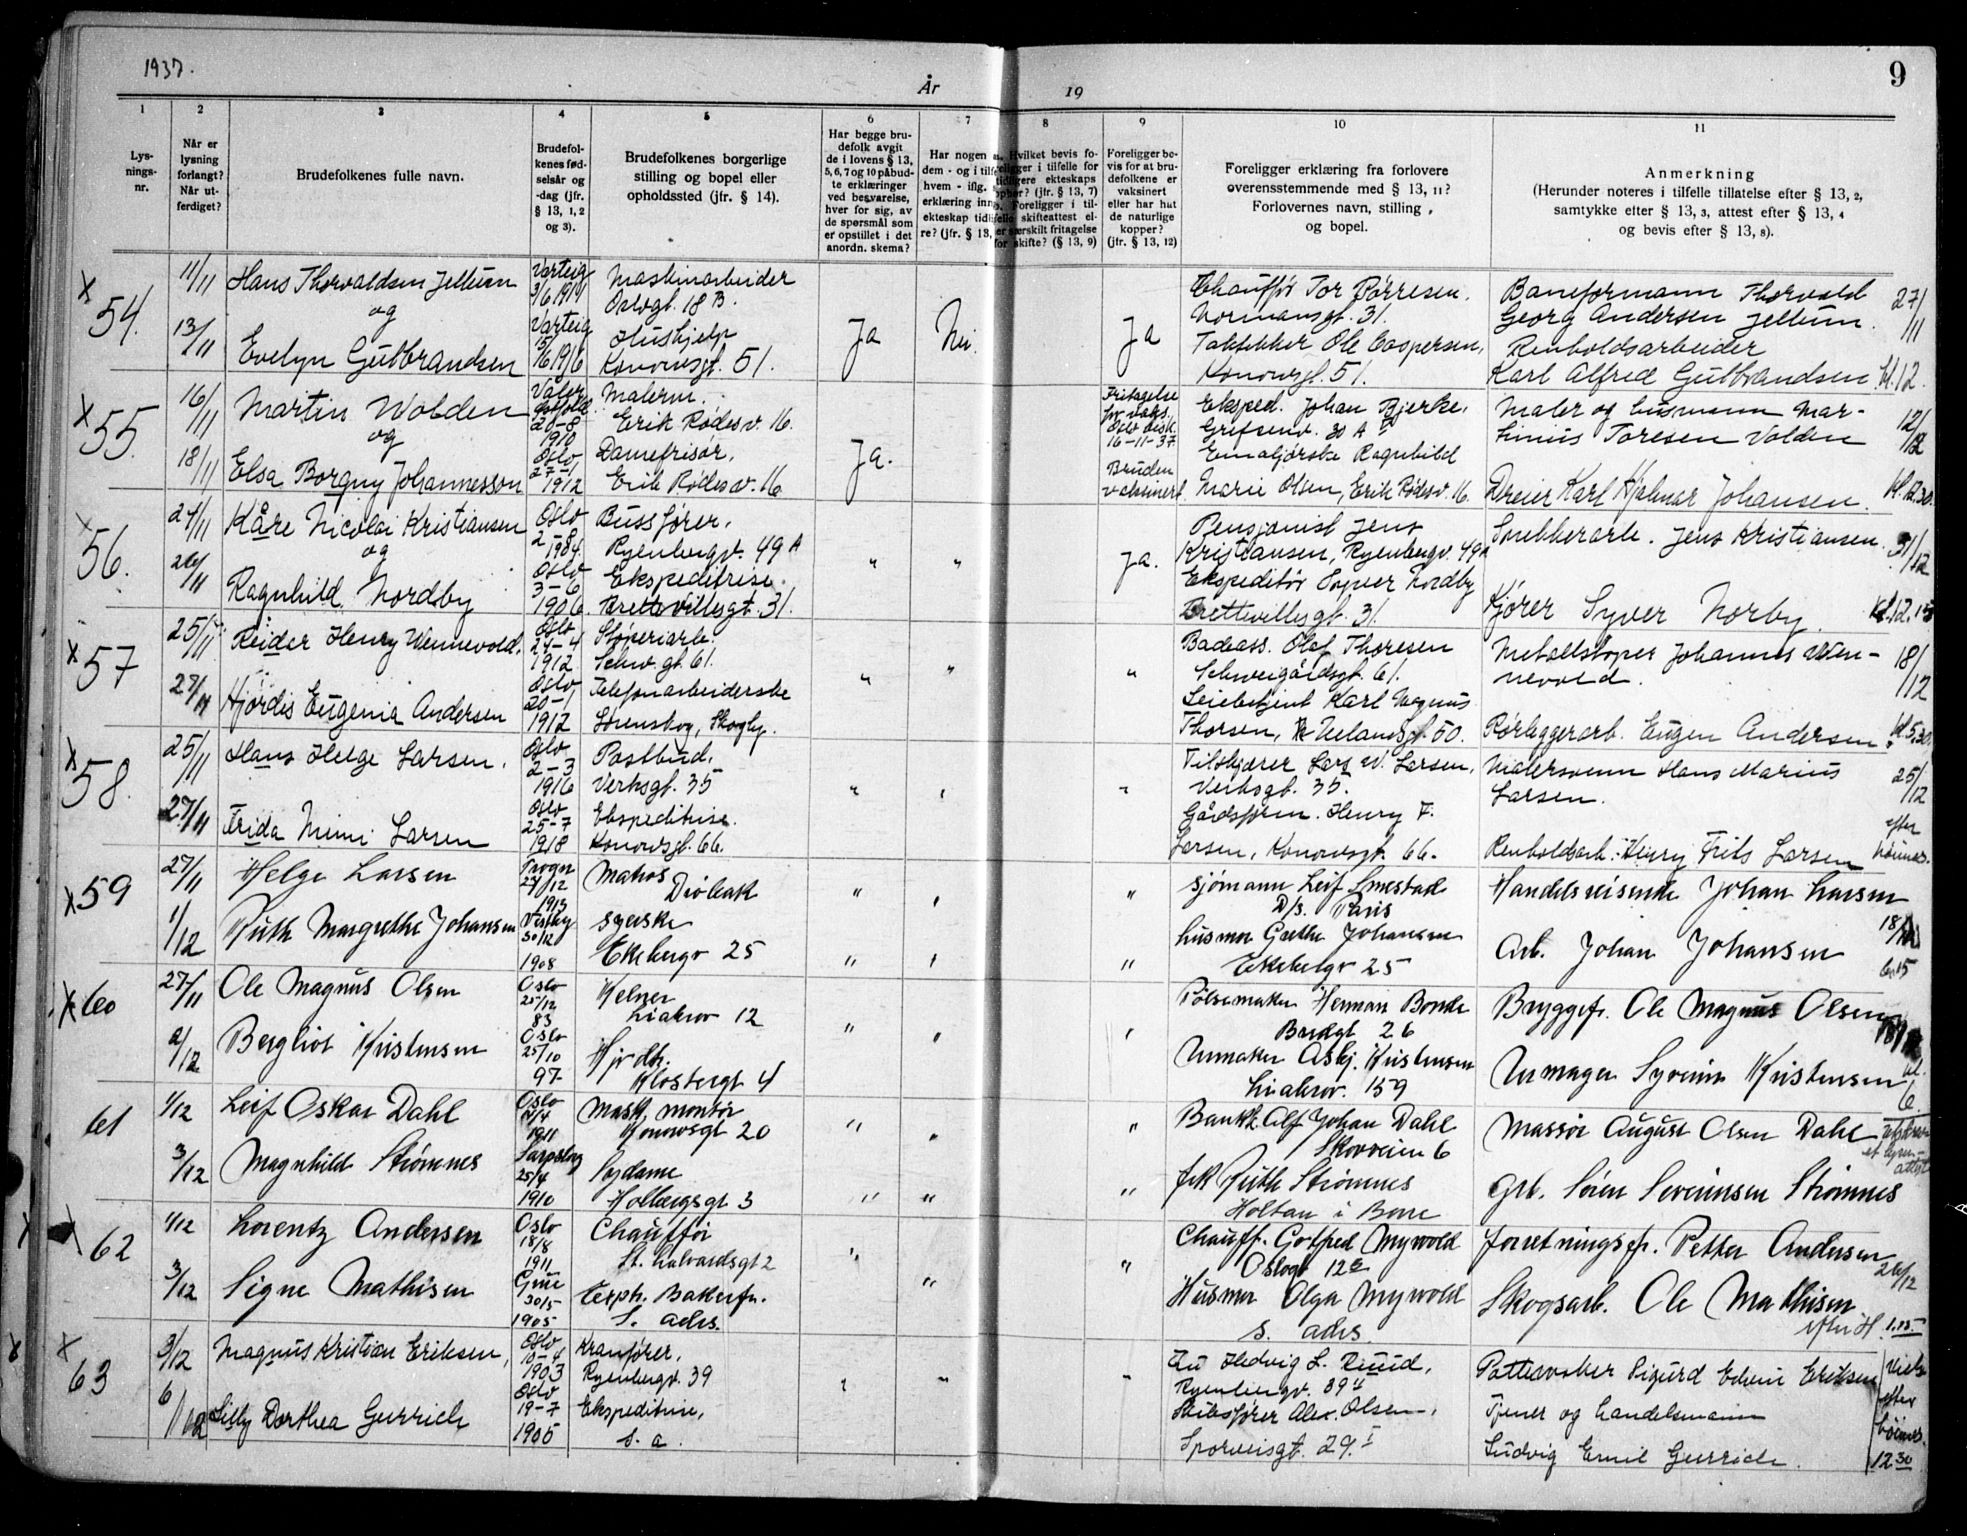 1937.
År
19
9
1
2
3
4
5
6
7
8
9
10
11
Lys-
nings-
nr.
Når er
lysning
forlangt?
Når ut-
ferdiget?
Brudefolkenes fulle navn.
Brudefol-
kenes fød-
selsår og
-dag (jfr.
§ 13, 1, 2
og 3).
Brudefolkenes borgerlige
stilling og bopel eller
opholdssted (jfr. § 14).
Har begge bru-
defolk avgit
de i lovens § 13,
5, 6, 7 og 10 påbud-
te erklæringer
ved besvarelse,
hver for sig, av
de spørsmål som
er opstillet i det
anordn. skema?
Har nogen
dem - og i tilf
hvem - iflg.
erklæring inn
ekteskap tidl
re? (jfr. § 13,
a. Hvilket bevis fo-
religger i tilfelle for
tidligere ekteskaps
ophør? (jfr. § 13, 7)
b. Foreligger i til-
felle skifteattest el-
er særskilt fritagelse
for skifte? (§ 13, 9)
Foreligger be-
vis for at bru-
defolkene er
vaksinert
eller har hat
de naturlige
kopper?
(jfr. § 13, 12)
Foreligger erklæring fra forlovere
overensstemmende med § 13, 11?
Forlovernes navn, stilling
og bopel.
Anmerkning
(Herunder noteres i tilfelle tillatelse efter § 13, 2,
samtykke efter § 13, 3, attest efter § 13, 4
og bevis efter § 13, 8).
x 54.
11/11
13/11
Hans Thorvaldsen Jellum
og
Evelyn Gulbrandsen
Varteig
3/6 1914
Varteig
15/6 1916
Maskinarbeider
Oslogt. 18 B.
Hushjelp
Konowsgt. 51.
Ja
Nei.
Ja
Chauffør Tor Børresen.
Normansgt. 31.
Taktekker Ole Caspersen,
Konowsgt. 51.
Baneformann Thorvald
Georg Andersen Jellum.
Renholdsarbeider
Karl Alfred Gulbrandsen
27/11
kl. 12.
x 55.
16/11
18/11
Martin Volden
og
Elsa Borgny Johannesson
Våler
Østfold
20-8
1910
Oslo
27-1
1912
Malersv.
Erik Rødesv. 16.
Damefrisør,
Erik Rødesv. 16
Ja.
Fritagelse
for vaks.
Oslo bisk.
16-11-37
Bruden
vaksinert
Eksped. Johan Bjerke,
Grefsenv. 30 A
Emaljørske Ragnhild
Marie Olsen, Erik Rødesv. 16.
Maler og husmann Mar-
tinius Toresen Volden
Dreier Karl Hjalmar Johansen.
12/12
kl. 12.30.
x 56.
24/11
26/11
Kåre Nicolai Kristiansen
og
Ragnhild Nordby
Oslo
2-8
1904.
Oslo
3-6
1906.
Bussfører,
Ryenbergv. 49 A
Ekspeditrise.
Brettevillesgt. 31.
"
"
Ja.
Pensjonist Jens
Kristiansen, Ryenbergv. 49A
Ekspeditør Syver Nordby
Brettevillesgt. 31.
Snekkerarb. Jens Kristiansen.
Kjører Syver Norby.
31/12
Kl. 12.15
x 57
25/11
27/11
Reidar Henry Wennevold.
Hjørdis Eugenie Andersen
Oslo
24-4
1912.
Oslo
20-1
1912
Støperiarb.
Schw. gt. 61.
Telefonarbeiderske
Lørenskog, Skogly.
"
"
"
Badeass. Olaf Thoresen
Schweigårdsgt. 61.
Karl Magnus
Thorsen, Uelandsgt. 50.
Metallstøper Johannes Wen-
nevold.
Rørleggerarb. Eugen Andersen.
18/12
kl. 5.30.
x 58.
25/11
27/11
Hans Helge Larsen.
Frida Mimi Larsen
Oslo
2-3
1916
Oslo
25-7
1918
Postbud.
Verksgt. 35
Ekspeditrise.
Konowsgt. 66.
"
"
"
Filskjærer Lars W. Larsen,
Verksgt. 35.
Gårdsform. Henry F.
Larsen, Konowsgt. 66.
Malersvenn Hans Marius
Larsen.
Renholdsarb. Henry Frits Larsen
25/12
efter
høimes.
x 59
27/11
1/12
Helge Larsen
Ruth Margrethe Johansen
Trøgst
1913
Vestby
30/12
1908
Matros
Drøbak
syerske
Ekebergv 25
"
"
"
"
"
"
sjømann Leif Smestad
D/S. Paris
husmor Grethe Johansen
Ekebergv 25
Handelsreisende Johan Larsen
Arb. Johan Johansen
18/12
x 60
27/11
2/12
Ole Magnus Olsen
Bergliot Kristensen
Oslo
25/12
83
Oslo
25/10
97
Kelner
Liabrov 12
Hj.dtr.
Klostergt 4
"
"
"
Pølsemaker Herman Bonde
Bredgt 26
Urmaker Asbj. Kristensen
Liabrov. 159
Bryggefr. Ole Magnus Olsen
Urmager Syverin Kristensen
18/12
kl.
6.
61
1/12
3/12
Leif Oskar Dahl
Magnhild Strømnes
Oslo
1911
Sarpsborg
25/4
1910
Mask. montør
Konowsgt 20
Sydame
Holbergsgt 3
"
"
"
"
"
"
Bankk. Alf Johan Dahl
Skovveien 6
frk Ruth Strømnes
Holtan i Borre
Massør August Olsen Dahl
Grb. Søren Severinsen Strømnes
attest
x 62
1/12
3/12
Lorentz Andersen
Signe Mathisen
Oslo
18/8
1911
Grue
30/5
1905
Chauffør
St. halvardsgt 2
Exp. Bakerfr.
S. adrs.
"
"
"
Chauff. Gotfred Myrvold
Oslogt 12
Husmor Olga Myrvold
s. adrs.
forretningsfr. Petter Andersen
Skogsarb. Ole Mathisen
26/12
efter H 1.15
x 63
3/12
6/12
Magnus Kristian Eriksen,
Lilly Dorthea Gerrich
Oslo
10-4
1903
Oslo
19-7
1905
Kranfører,
Ryenbergv. 39
Ekspeditrise,
s. a.
"
"
"
Fru Hedvig L. Ruud,
Ryenbergv. 39
Alex. Olsen,
Sporveisgt. 29.
Sigurd Edvin Eriksen
Tjener og handelsmann
Ludvig Emil Gerrich.
Viets
efter
høimes.
12.30